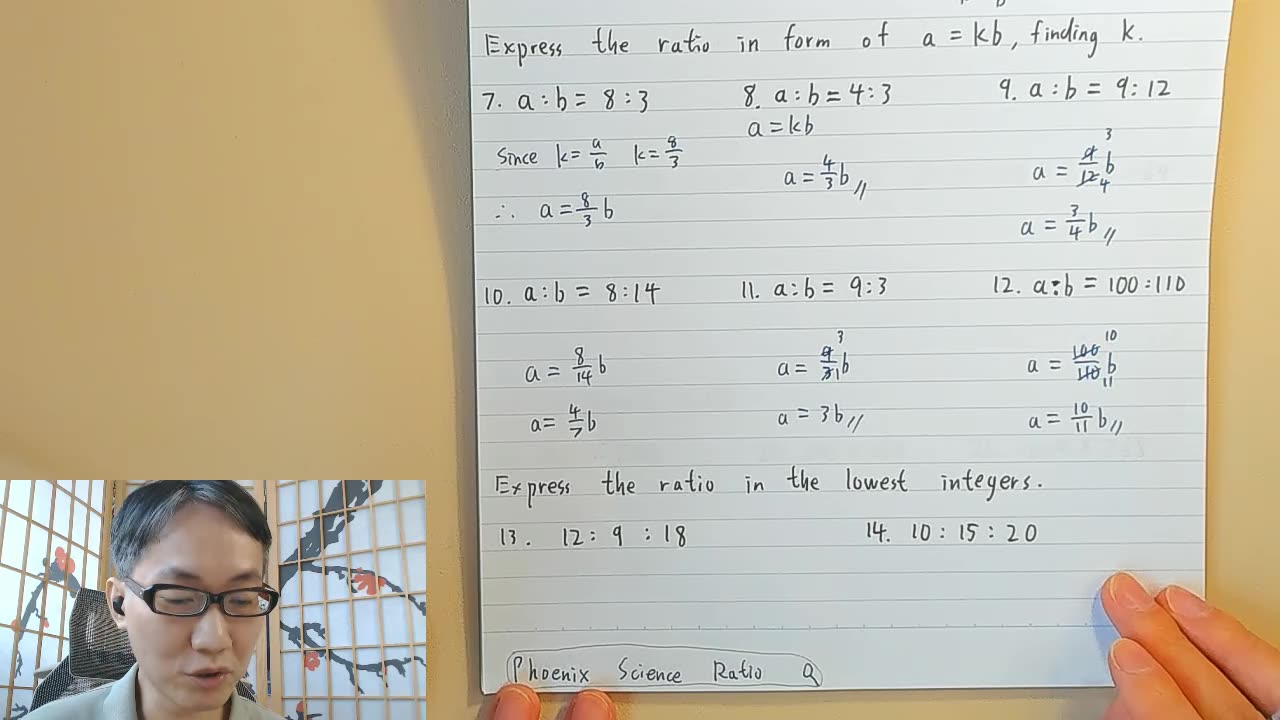 Express the ratio in form of a = kb, finding k.
7. a : b = 8 : 3
Since k = a/b k = 8/3
∴ a = 8/3 b
8. a : b = 4 : 3
a = kb
a = 4/3 b //
9. a : b = 9 : 12
3
a = 9/12 b
4
a = 3/4 b //
10. a : b = 8 : 14
a = 8/14 b
a = 4/7 b
11. a : b = 9 : 3
3
a = 9/3 b
1
a = 3b //
12. a : b = 100 : 110
10
a = 100/110 b
11
a = 10/11 b //
Express the ratio in the lowest integers.
13. 12 : 9 : 18
14. 10 : 15 : 20
Phoenix Science Ratio Q